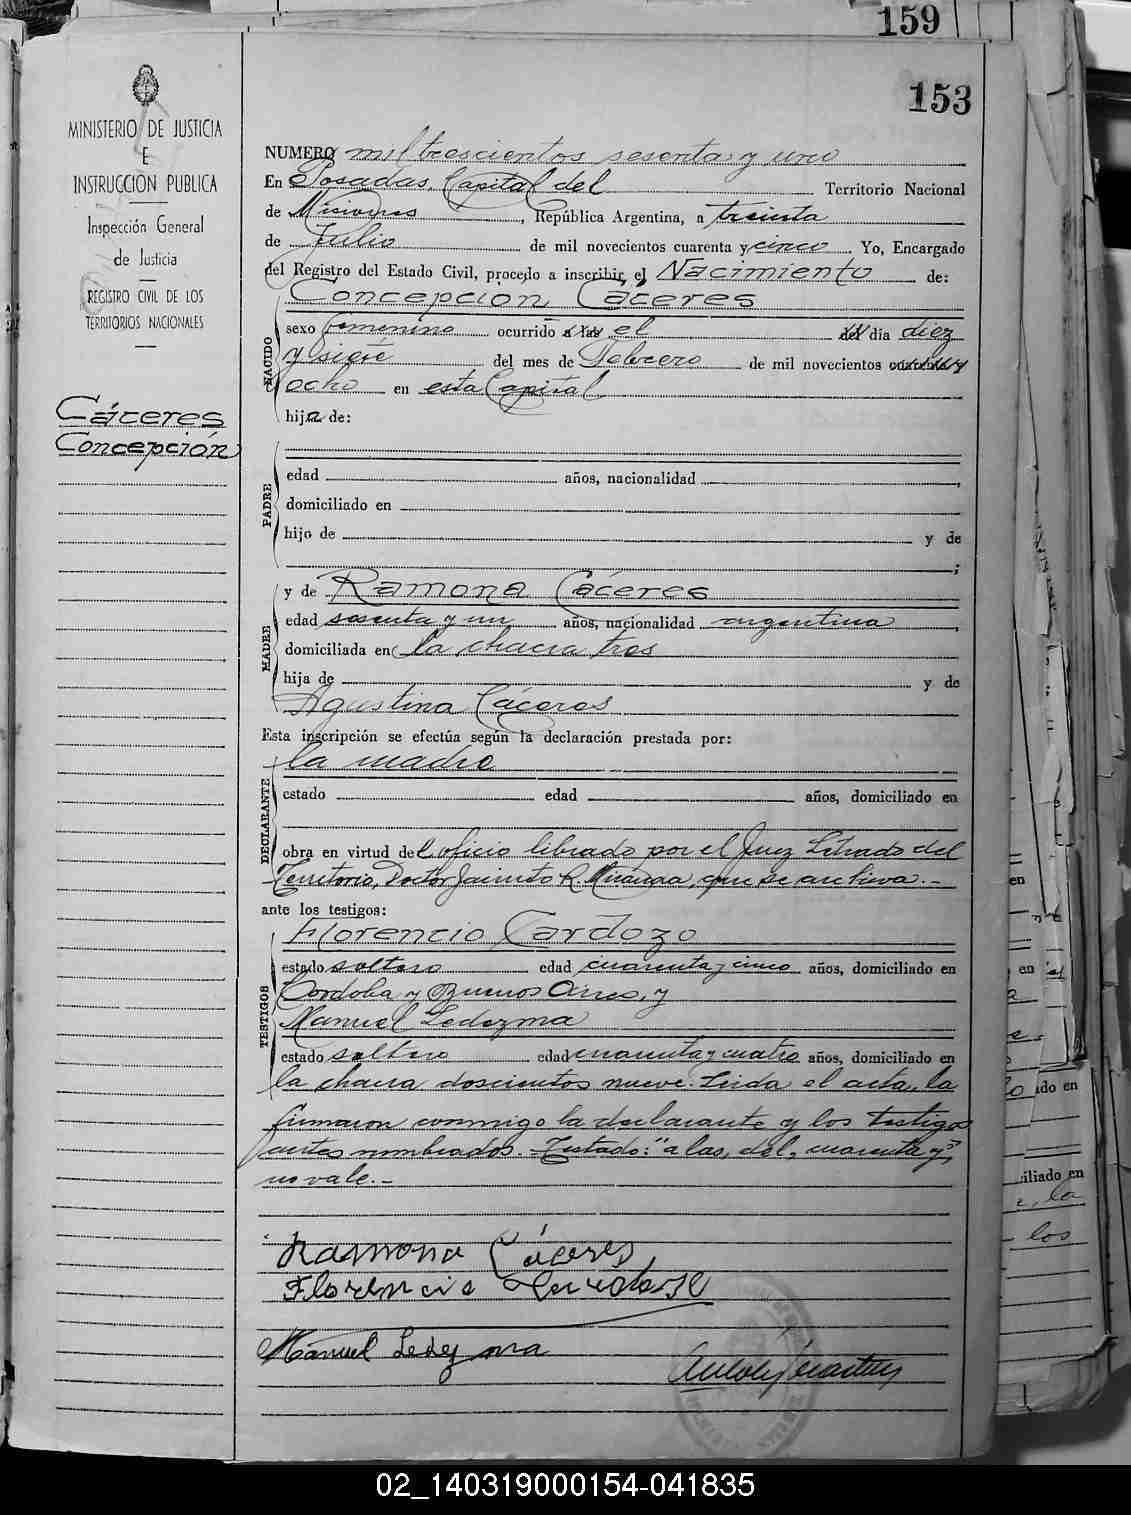 159
153
MINISTERIO DE JUSTICIA
E
INSTRUCCION PUBLICA
Inspección General
de Justicia
REGISTRO CIVIL DE LOS
TERRITORIOS NACIONALES
Cáceres
Concepción
NUMERO mil trescientos sesenta y uno
En Posadas, Capital del Territorio Nacional
de Misiones, República Argentina, a treinta
de Julio de mil novecientos cuarenta y cinco Yo, Encargado
del Registro del Estado Civil, procedo a inscribir, el Nacimiento de:
Concepción Cáceres
NACIDO
sexo femenino ocurrido a las el del día diez
y siete del mes de Febrero de mil novecientos cuarenta y
ocho en esta Capital
hija de:
PADRE
edad años, nacionalidad ,
domiciliado en
hijo de y de
;
MADRE
y de Ramona Cáceres
edad sesenta y un años, nacionalidad argentina ,
domiciliada en la chacra tres
hija de y de
Agustina Cáceres
Esta inscripción se efectúa según la declaración prestada por:
DECLARANTE
la madre
estado edad años, domiciliado en
obra en virtud del oficio librado por el Juez Letrado del
Territorio, Doctor Jacinto R. Miranda, que se archiva.-
ante los testigos:
TESTIGOS
Florencio Cardozo
estado soltero edad cuarenta y cinco años, domiciliado en
Cordoba y Buenos Aires, y
Manuel Ledezma
estado soltero edad cuarenta y cuatro años, domiciliado en
la chacra doscientos nueve. Leida el acta, la
firmaron conmigo la declarante y los testigos
antes nombrados. Testado: "a las, del, cuarenta y",
no vale.-
Ramona Cáceres
Florencio
Manuel Ledezma
en
en
ado en
iliado en
la
los
02_140319000154-041835